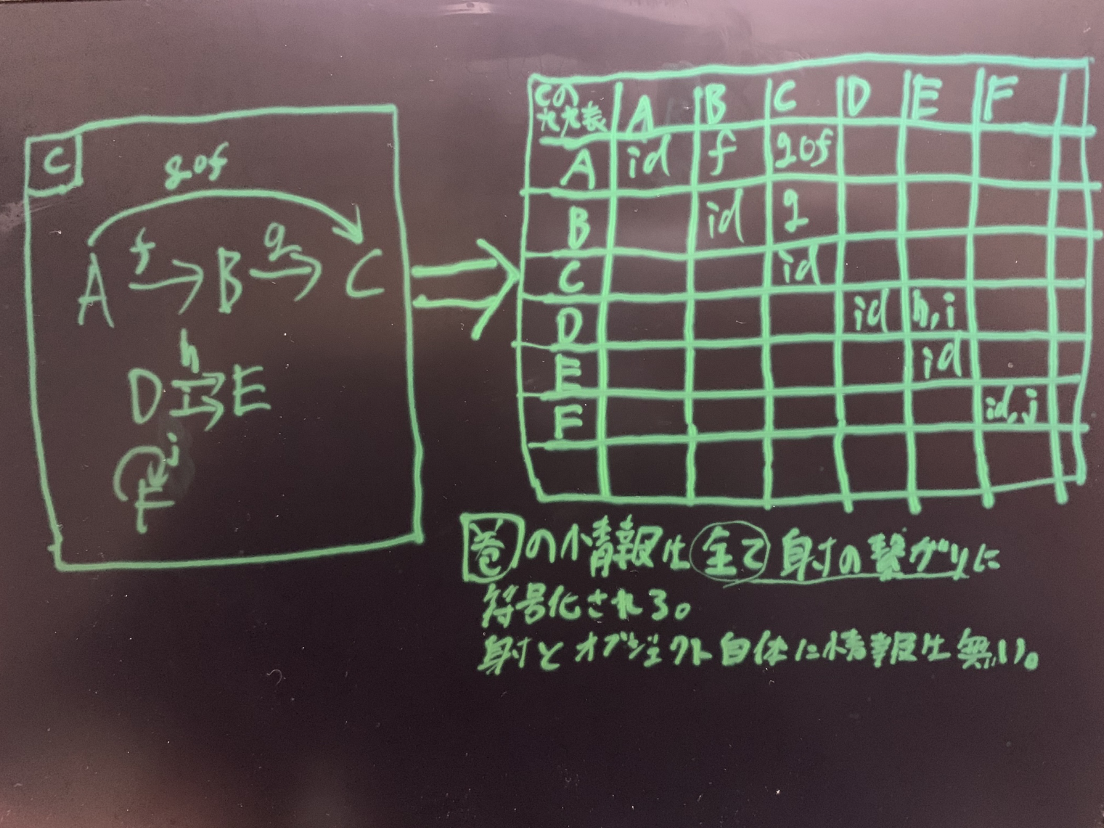 C
g∘f
A f B g C
h
D i E
j
F
Cの九九表 A B C D E F
A id f g∘f
B id g
C id
D id h,i
E id
F id,j
圏の情報は全て射の繋がりに
符号化される。
射とオブジェクト自体に情報は無い。